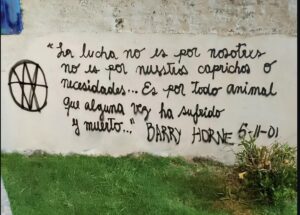 "La lucha no es por nosotros
no es por nuestros caprichos o
necesidades... Es por todo animal
que alguna vez ha sufrido
y muerto..." BARRY HORNE 5-11-01